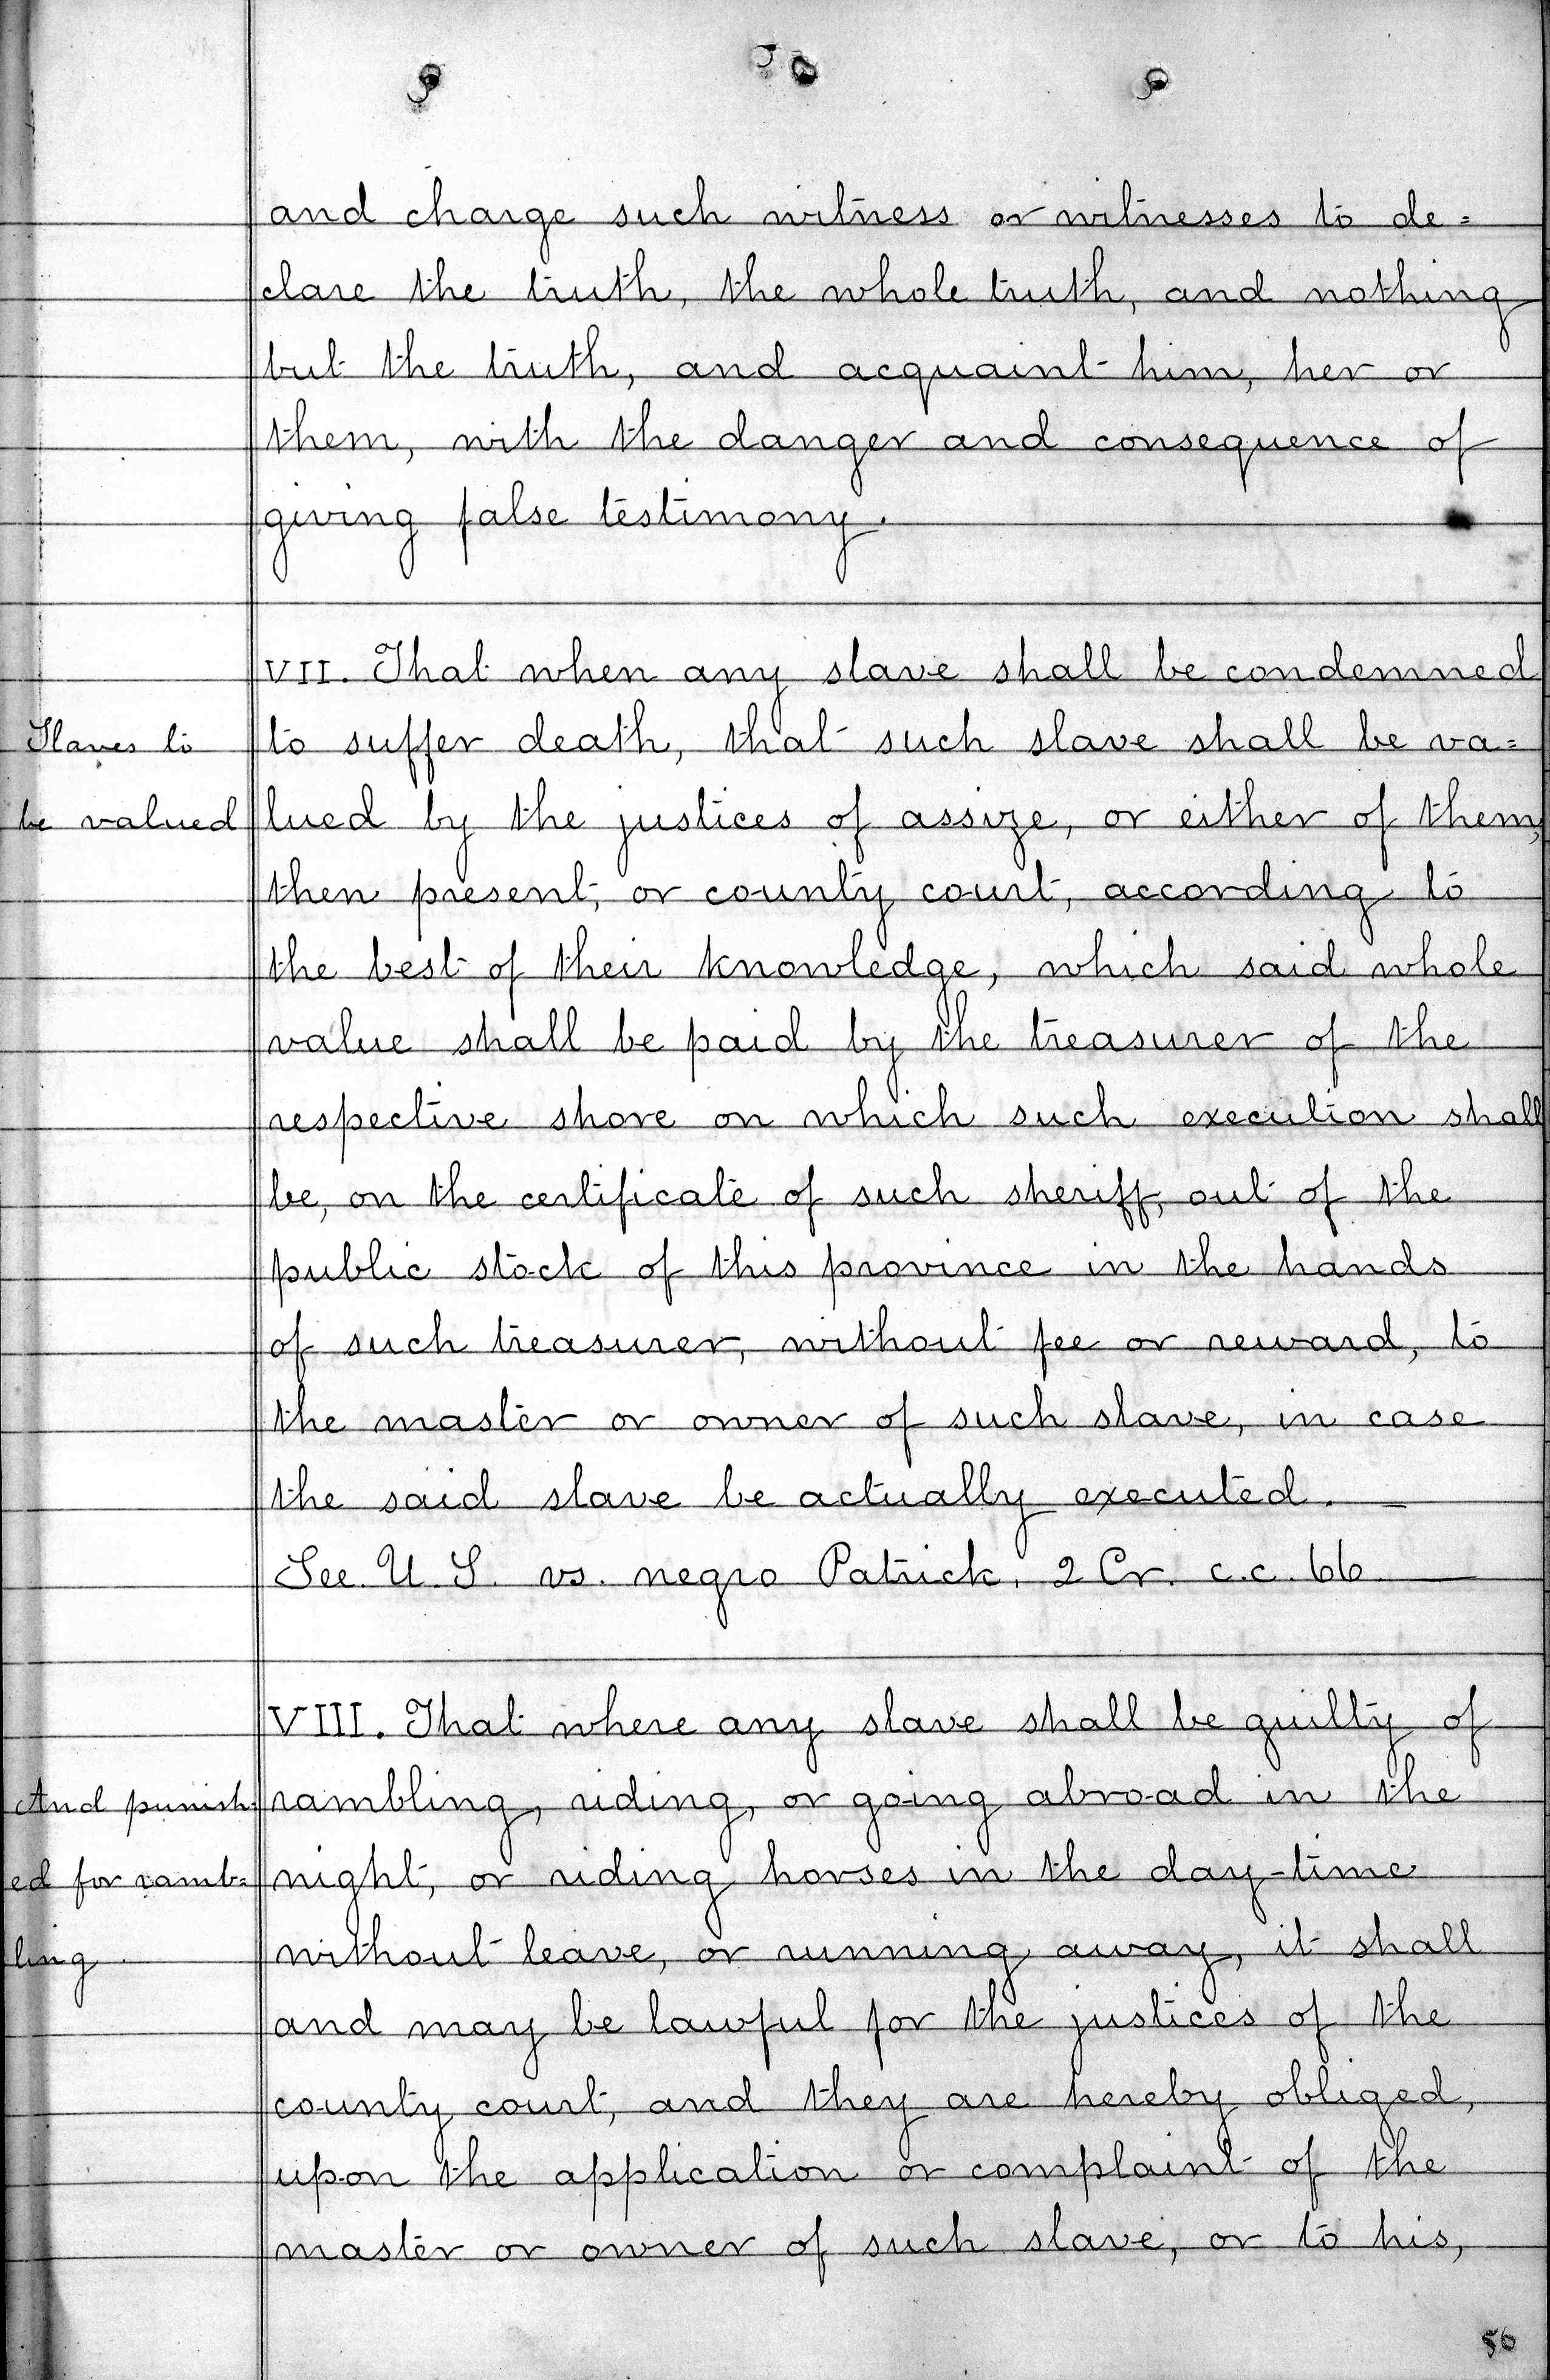 and charge such witness or witnesses to de=
clare the truth, the whole truth, and nothing
but the truth, and acquaint him, her or
them, with the danger and consequence of
giving false testimony.
VII. That when any slave shall be condemned
Slaves to
to suffer death, that such slave shall be va=
be valued
lued by the justices of assize, or either of them,
then present, or county court, according to
the best of their knowledge, which said whole
value shall be paid by the treasurer of the
respective shore on which such execution shall
be, on the certificate of such sheriff, out of the
public stock of this province in the hands
of such treasurer, without fee or reward, to
the master or owner of such slave, in case
the said slave be actually executed. —
See. U. S. vs. negro Patrick. 2 Cr. c.c. 66. —
VIII. That where any slave shall be guilty of
And punish=
rambling, riding, or going abroad in the
ed for ramb=
night, or riding horses in the day-time
ling.
without leave, or running away, it shall
and may be lawful for the justices of the
county court, and they are hereby obliged,
upon the application or complaint of the
master or owner of such slave, or to his,
56